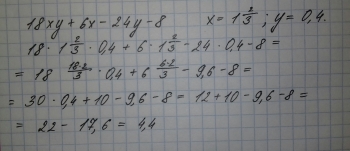 18xy + 6x - 24y - 8    x = 1 2/3 ; y = 0,4.
18 · 1 2/3 · 0,4 + 6 · 1 2/3 - 24 · 0,4 - 8 =
= 18 · 0,4 + 6 - 9,6 - 8 =
= 30 · 0,4 + 10 - 9,6 - 8 = 12 + 10 - 9,6 - 8 =
= 22 - 17,6 = 4,4